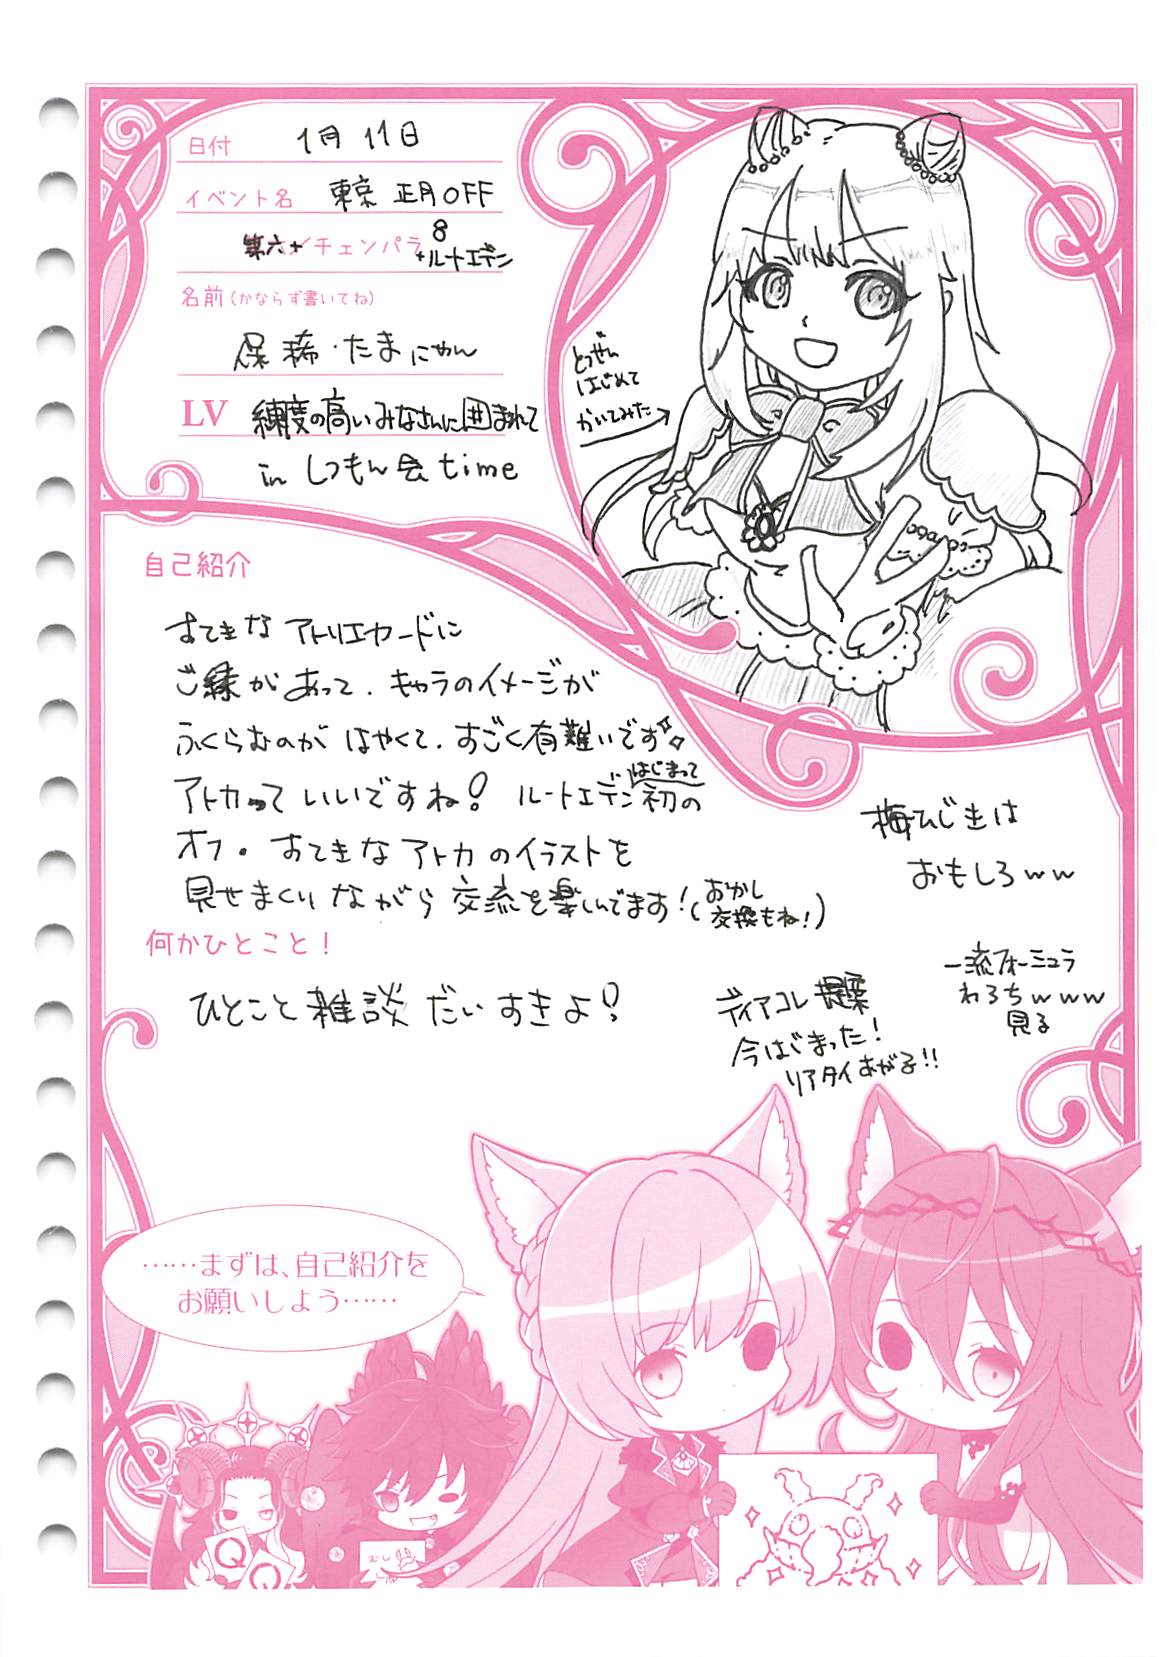 日付 1月11日
イベント名 東京 正月OFF
第六+チェンパラ8
+ルートエデン
名前(かならず書いてね)
保稀・たまにゃん
LV 練度の高いみなさんに囲まれて
in しつもん会 time
とつぜん
はじめて
かいてみた
自己紹介
すてきな アトリエカードに
ご縁があって、キャラのイメージが
ふくらむのが はやくて、すごく有難いです
アトカって いいですね! ルートエデンはじまって初の
オフ。すてきなアトカのイラストを
見せまくりながら 交流を楽しんでます!(おかし
交換もね!)
梅ひじきは
おもしろww
何かひとこと!
ひとこと雑談 だいすきよ!
一流フォーミュラ
わろちwww
見る
ディアコレ提案
今はじまった!
リアタイおが子!!
……まずは、自己紹介を
お願いしよう……
Q
Q